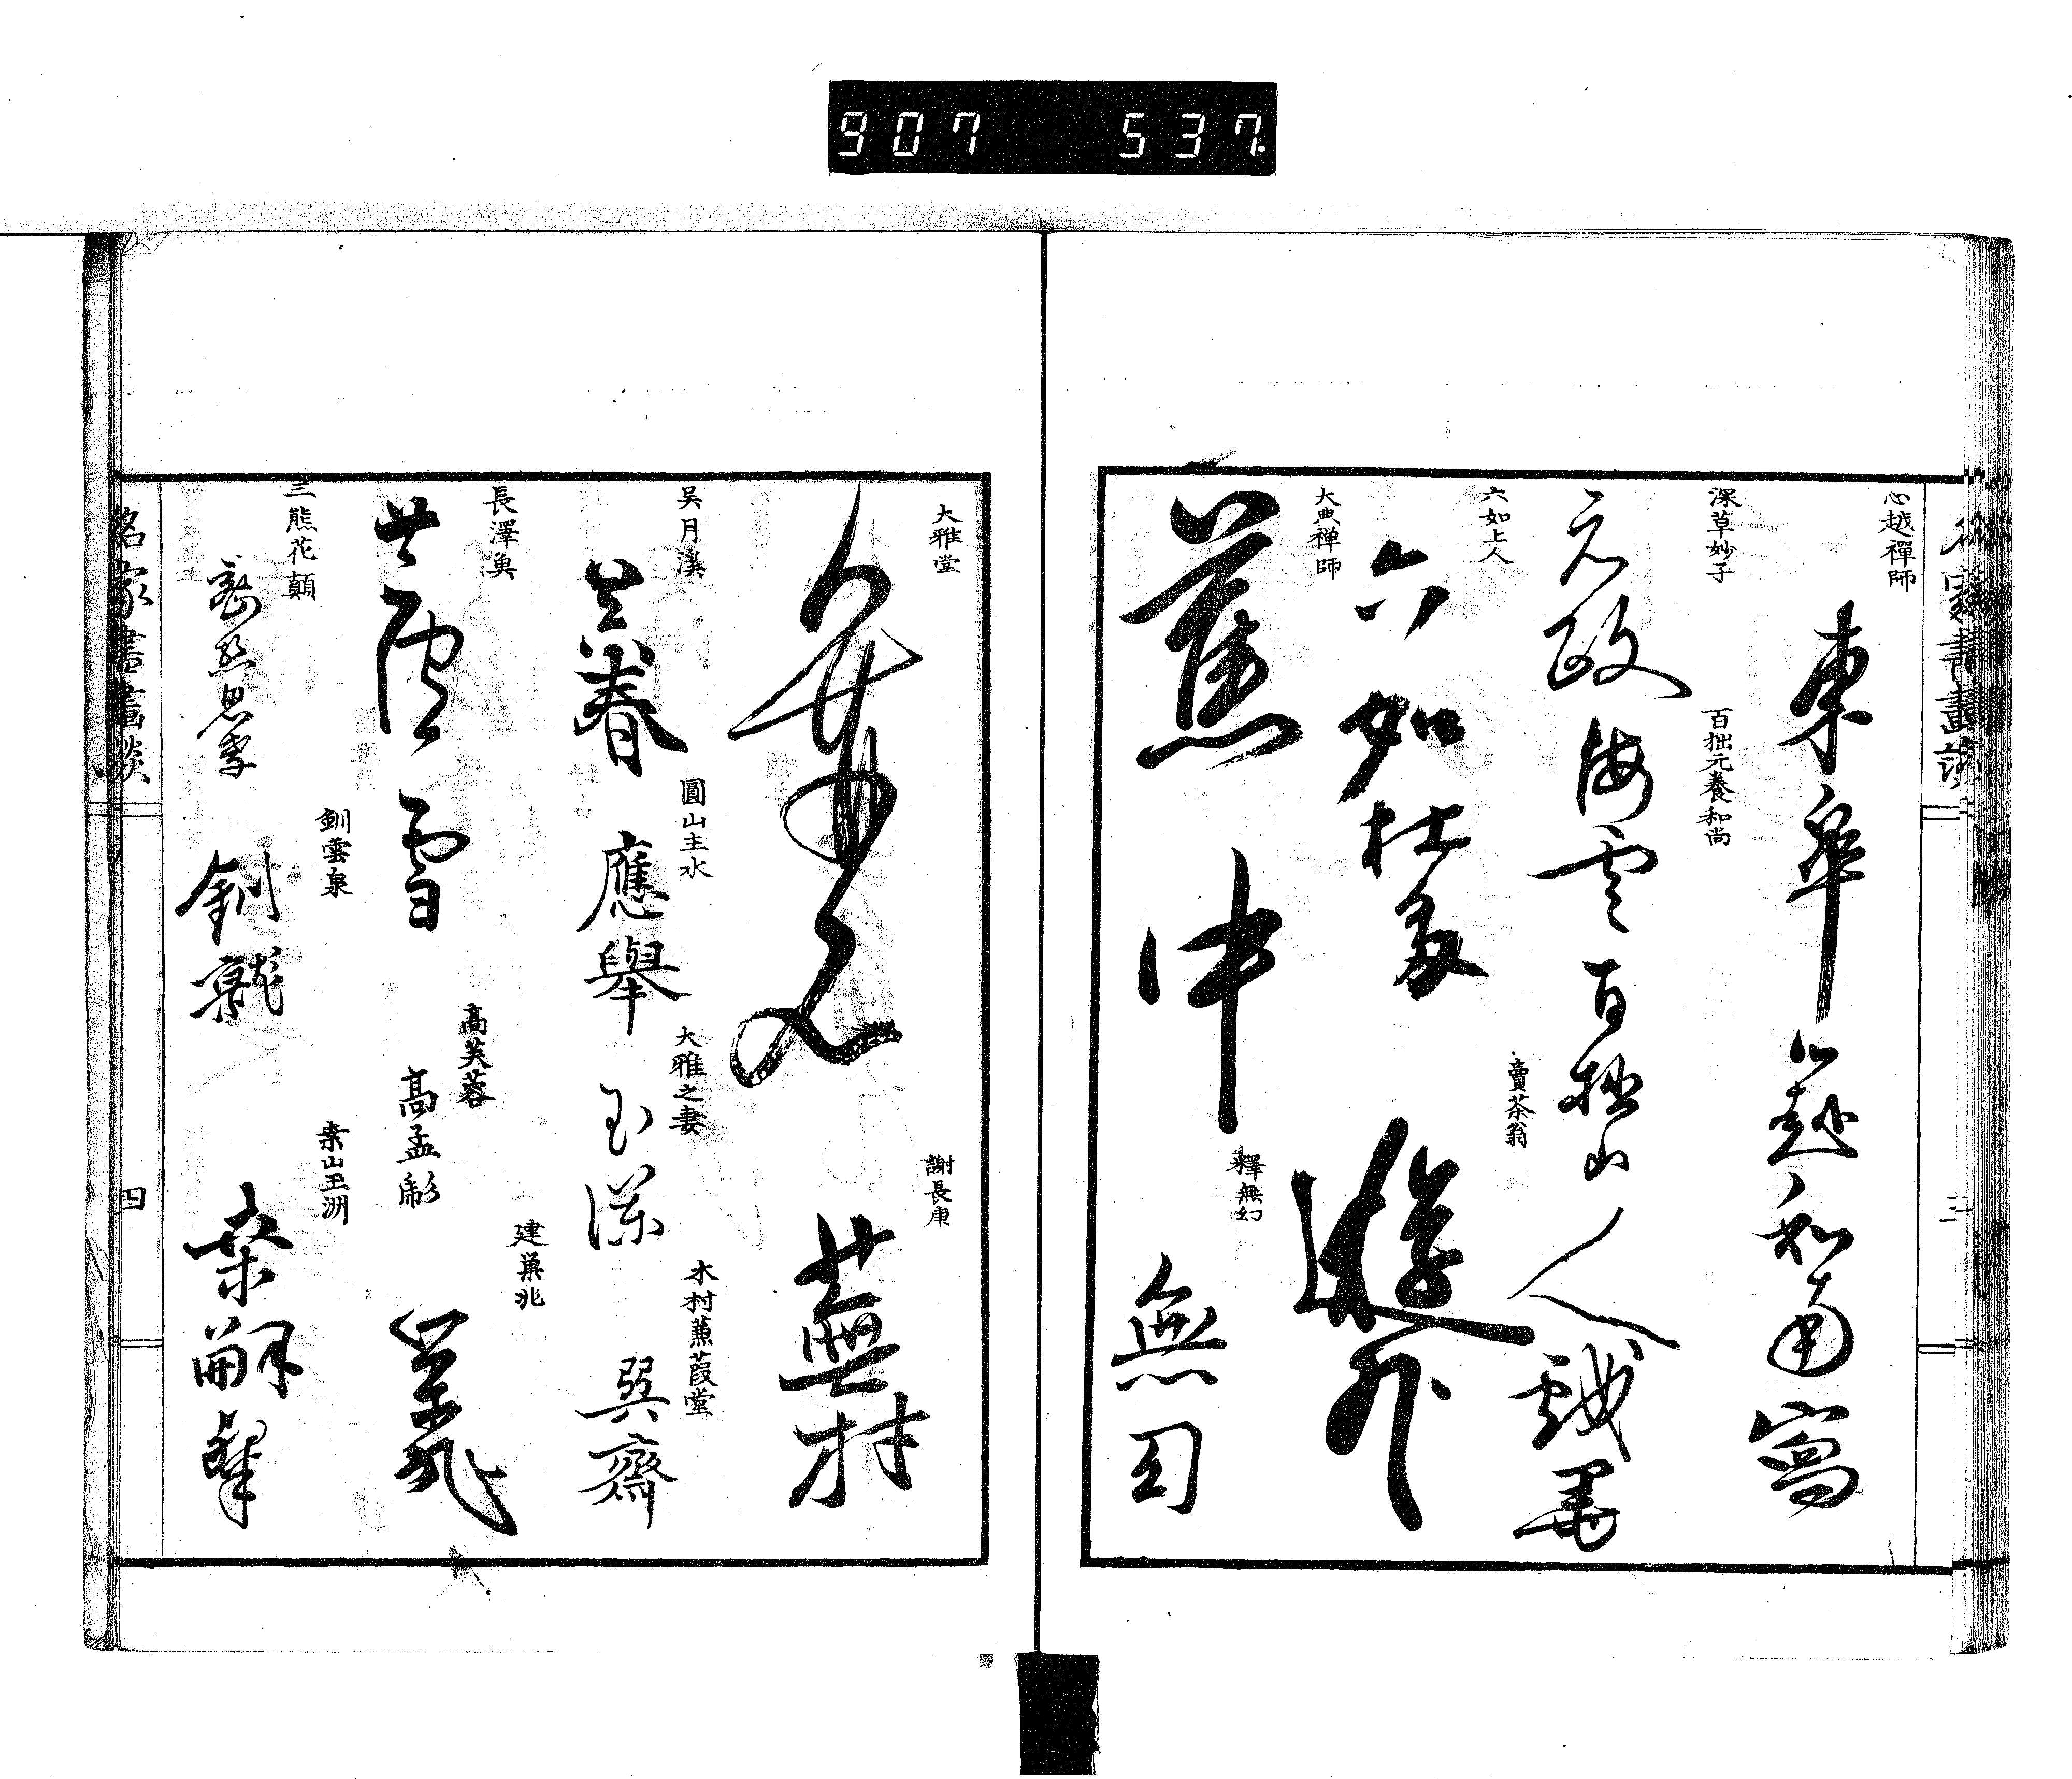 907 537.
名家書畫談
心越禪師
東皐心越和南寫
深草妙子
元政
百拙元養和尚
海雲百拙山人戯墨
六如上人
六如杜多
賣茶翁
遊外
大典禅師
蕉中
釋無幻
無幻
三
大雅堂
謝長庚
蕪村
吳月溪
吳春
圓山主水
應擧
大雅之妻
玉瀾
木村蒹葭堂
巽齋
長澤魚
芦雪
高芙蓉
高孟彪
建巣兆
巣兆
三熊花顛
思孝
釧雲泉
釧就
桒山玉洲
桒嗣粲
名家書畫談
四